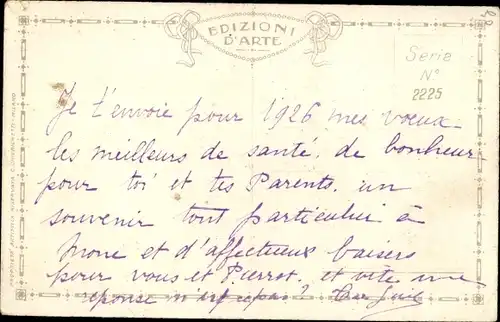 EDIZIONI
D'ARTE
Serie
N°
2225
Je t'envoie pour 1926 mes vœux
les meilleurs de santé, de bonheur
pour toi et tes Parents, un
souvenir tout particulier à
Mone et d'affectueux baisers
pour vous et Pierrot, et vite une
reponse n'est ce pas?